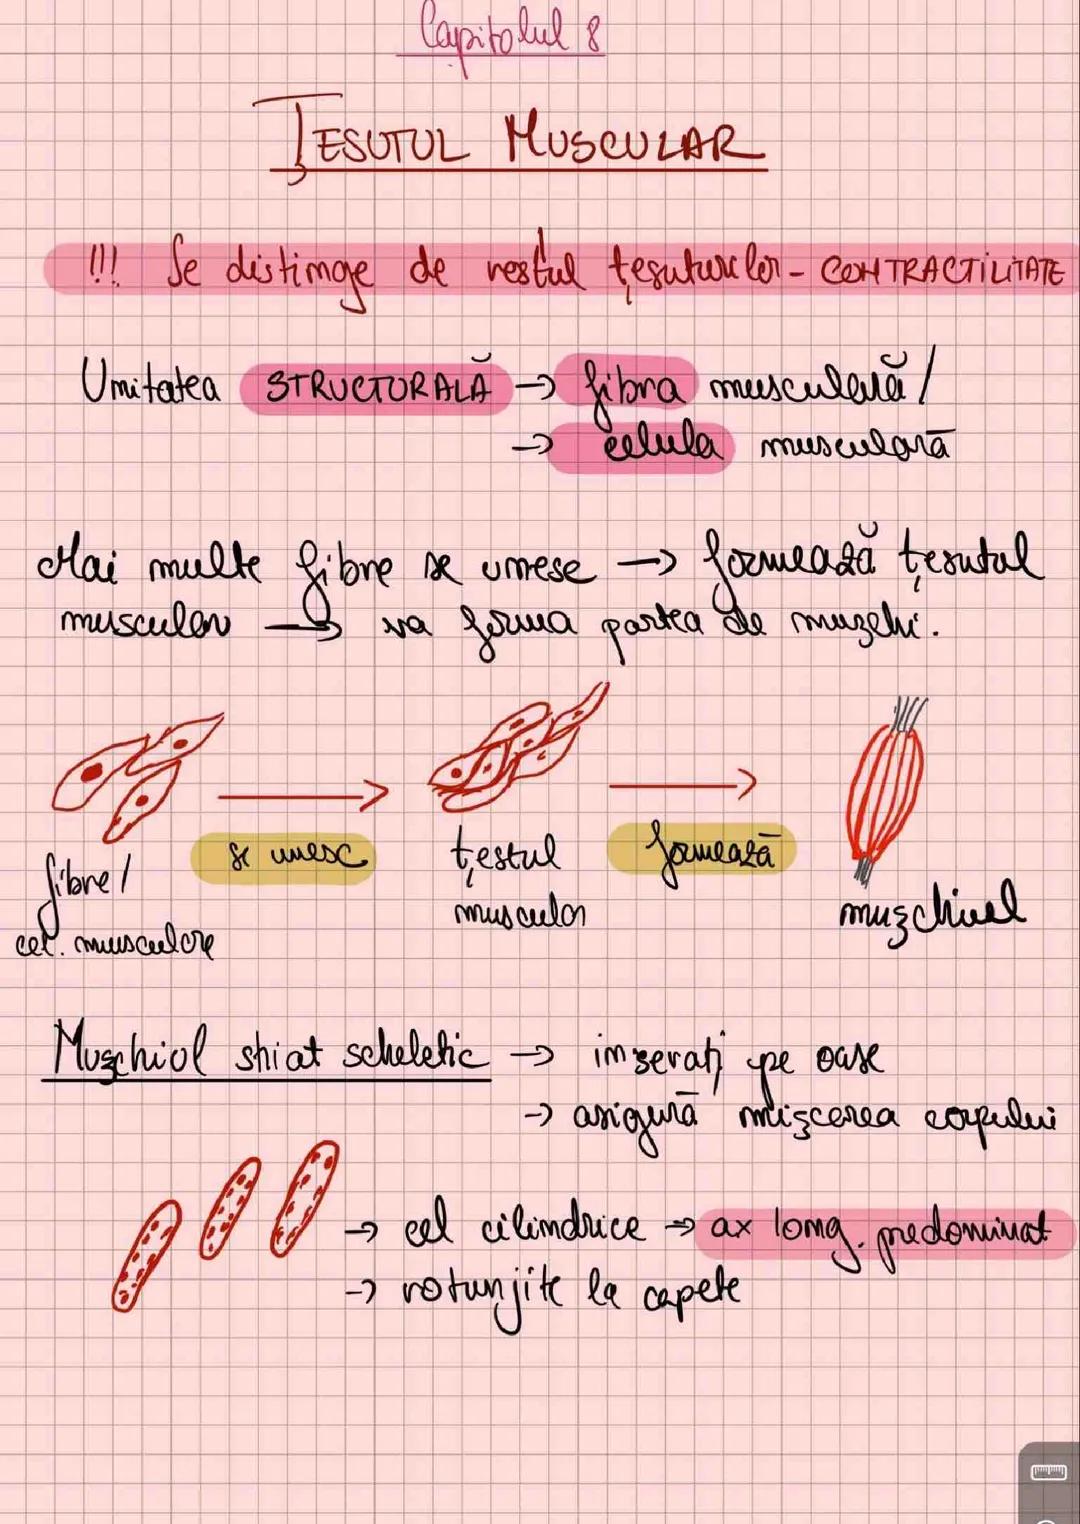 Capitolul 8
ȚESUTUL MUSCULAR
!!! Se distinge de restul țesuturilor - CONTRACTILITATE
Unitatea STRUCTURALĂ → fibra musculară /
→ celula musculară
Mai multe fibre se unesc → formează țesutul
muscular → va forma partea de mușchi.
se unesc
țestul
formează
fibre /
muscular
mușchiul
cel. musculare
Mușchiul striat scheletic → inserați pe oase
→ asigură mișcarea corpului
→ cel cilindrice → ax long. predominat
→ rotunjite la capete